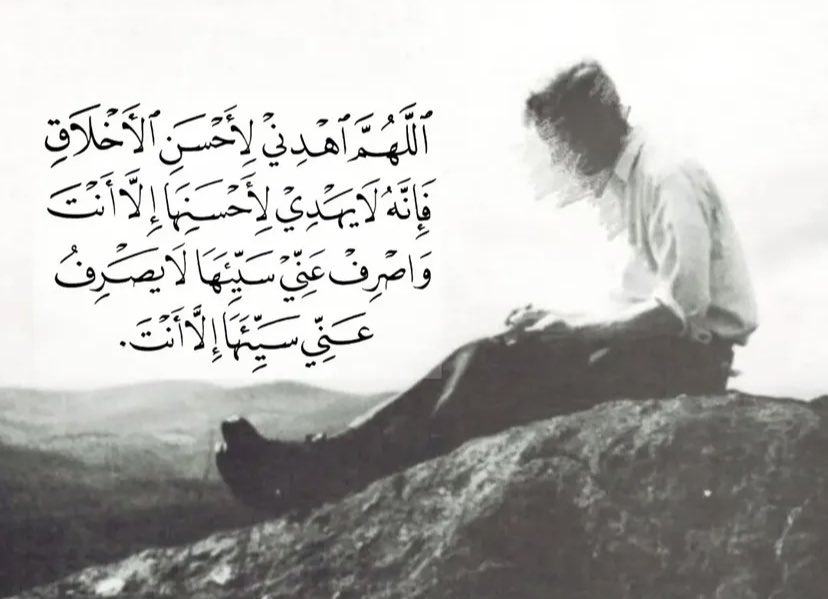 ٱللَّهُمَّ ٱهْدِنِيْ لِأَحْسَنِ ٱلْأَخْلَاقِ
فَإِنَّهُ لَا يَهْدِيْ لِأَحْسَنِهَا إِلَّا أَنْتَ
وَاصْرِفْ عَنِّيْ سَيِّئَهَا لَا يَصْرِفُ
عَنِّي سَيِّئَهَا إِلَّا أَنْتَ.